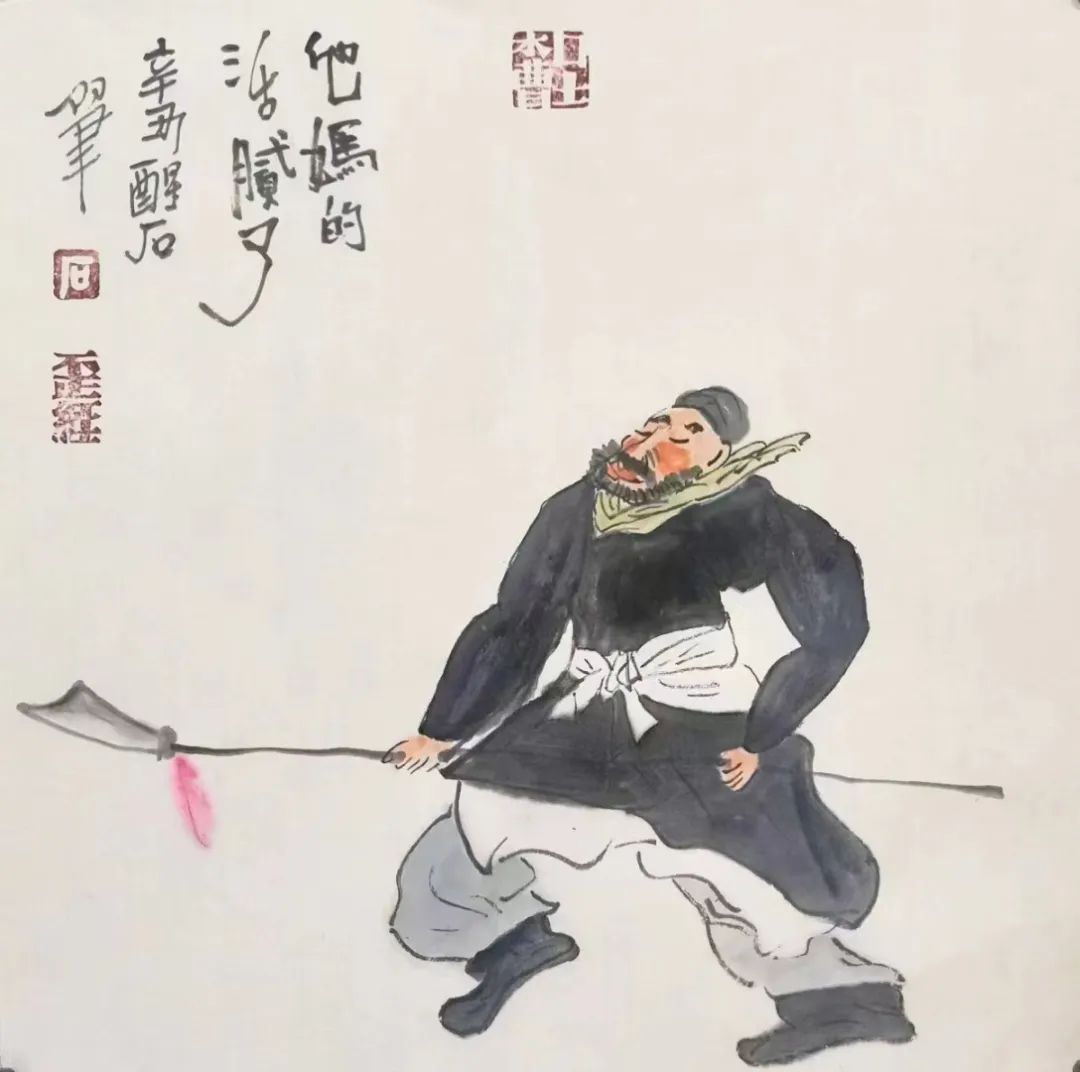 他媽的
活膩了
辛丑醒石
筆
石
歪